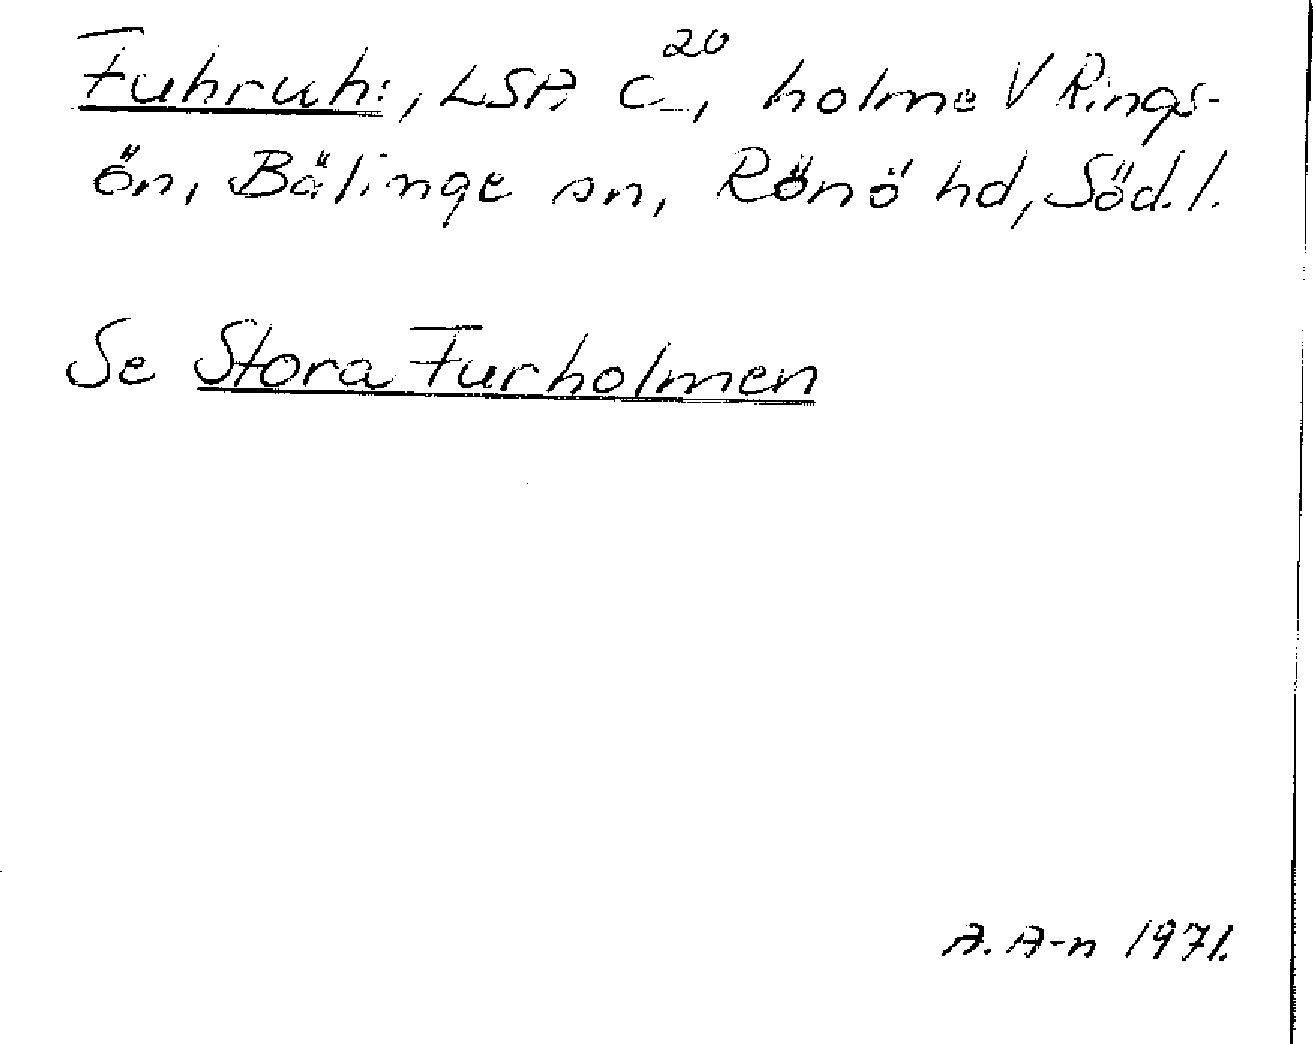 Fuhruh:, LSP. C 20, holme V Rings-
ön, Bälinge sn, Rönö hd, Söd.l.
Se Stora Furholmen
A. A-n 1971.